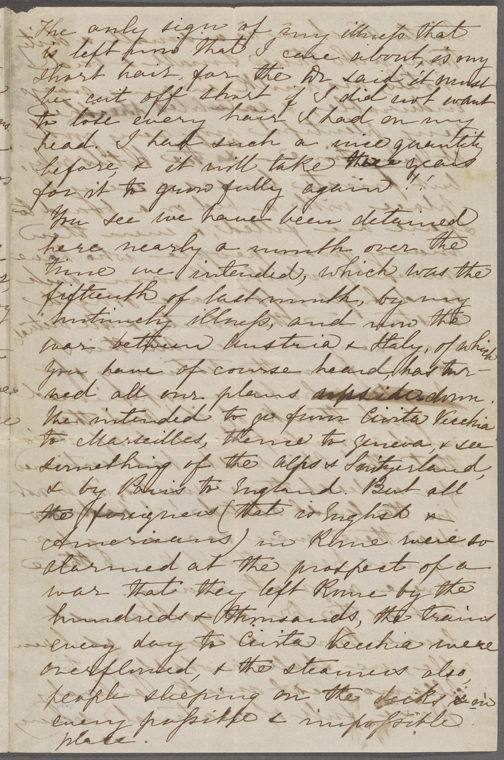 The only sign of my illness that
is left now that I care about, is my
short hair, for the Dr said it must
be cut off short if I did not want
to lose every hair I had on my
head. I had such a nice quantity
before, & it will take three years
for it to grow fully again!!
You see we have been detained
here nearly a month over the
time we intended, which was the
fifteenth of last month, by my
illness, and now the
war between Austria & Italy, of which
you have of course heard, has tur-
ned all our plans upside down.
We intended to go from Civita Vecchia
to Marseilles, thence to Geneva, & see
something of the Alps & Switzerland,
& by Paris to England. But all
the foreigners (that is English &
Americans) in Rome were so
alarmed at the prospect of a
war that they left Rome by the
hundreds & thousands, the trains
every day to Civita Vecchia were
overflowed, & the steamers also,
people sleeping on the decks, & in
every possible & impossible
place.